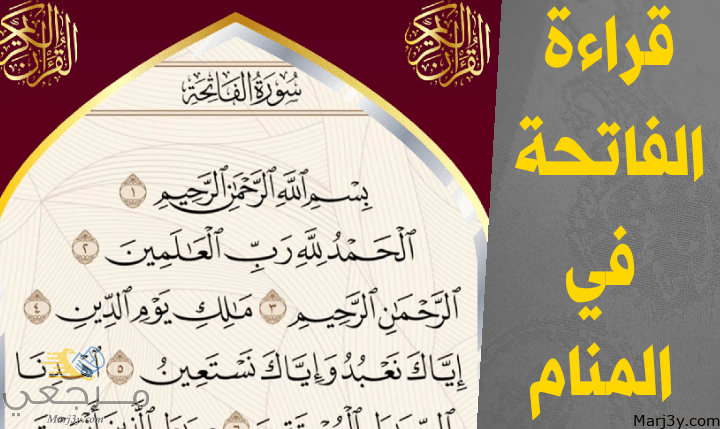 القرآن الكريم
القرآن الكريم
سُورَةُ الفَاتِحَةِ
بِسْمِ ٱللَّهِ ٱلرَّحْمَٰنِ ٱلرَّحِيمِ ١
ٱلْحَمْدُ لِلَّهِ رَبِّ ٱلْعَٰلَمِينَ ٢
ٱلرَّحْمَٰنِ ٱلرَّحِيمِ ٣ مَٰلِكِ يَوْمِ ٱلدِّينِ ٤
إِيَّاكَ نَعْبُدُ وَإِيَّاكَ نَسْتَعِينُ ٥ ٱهْدِنَا
مرجعي
Marj3y.com
قراءة
الفاتحة
في
المنام
Marj3y.com